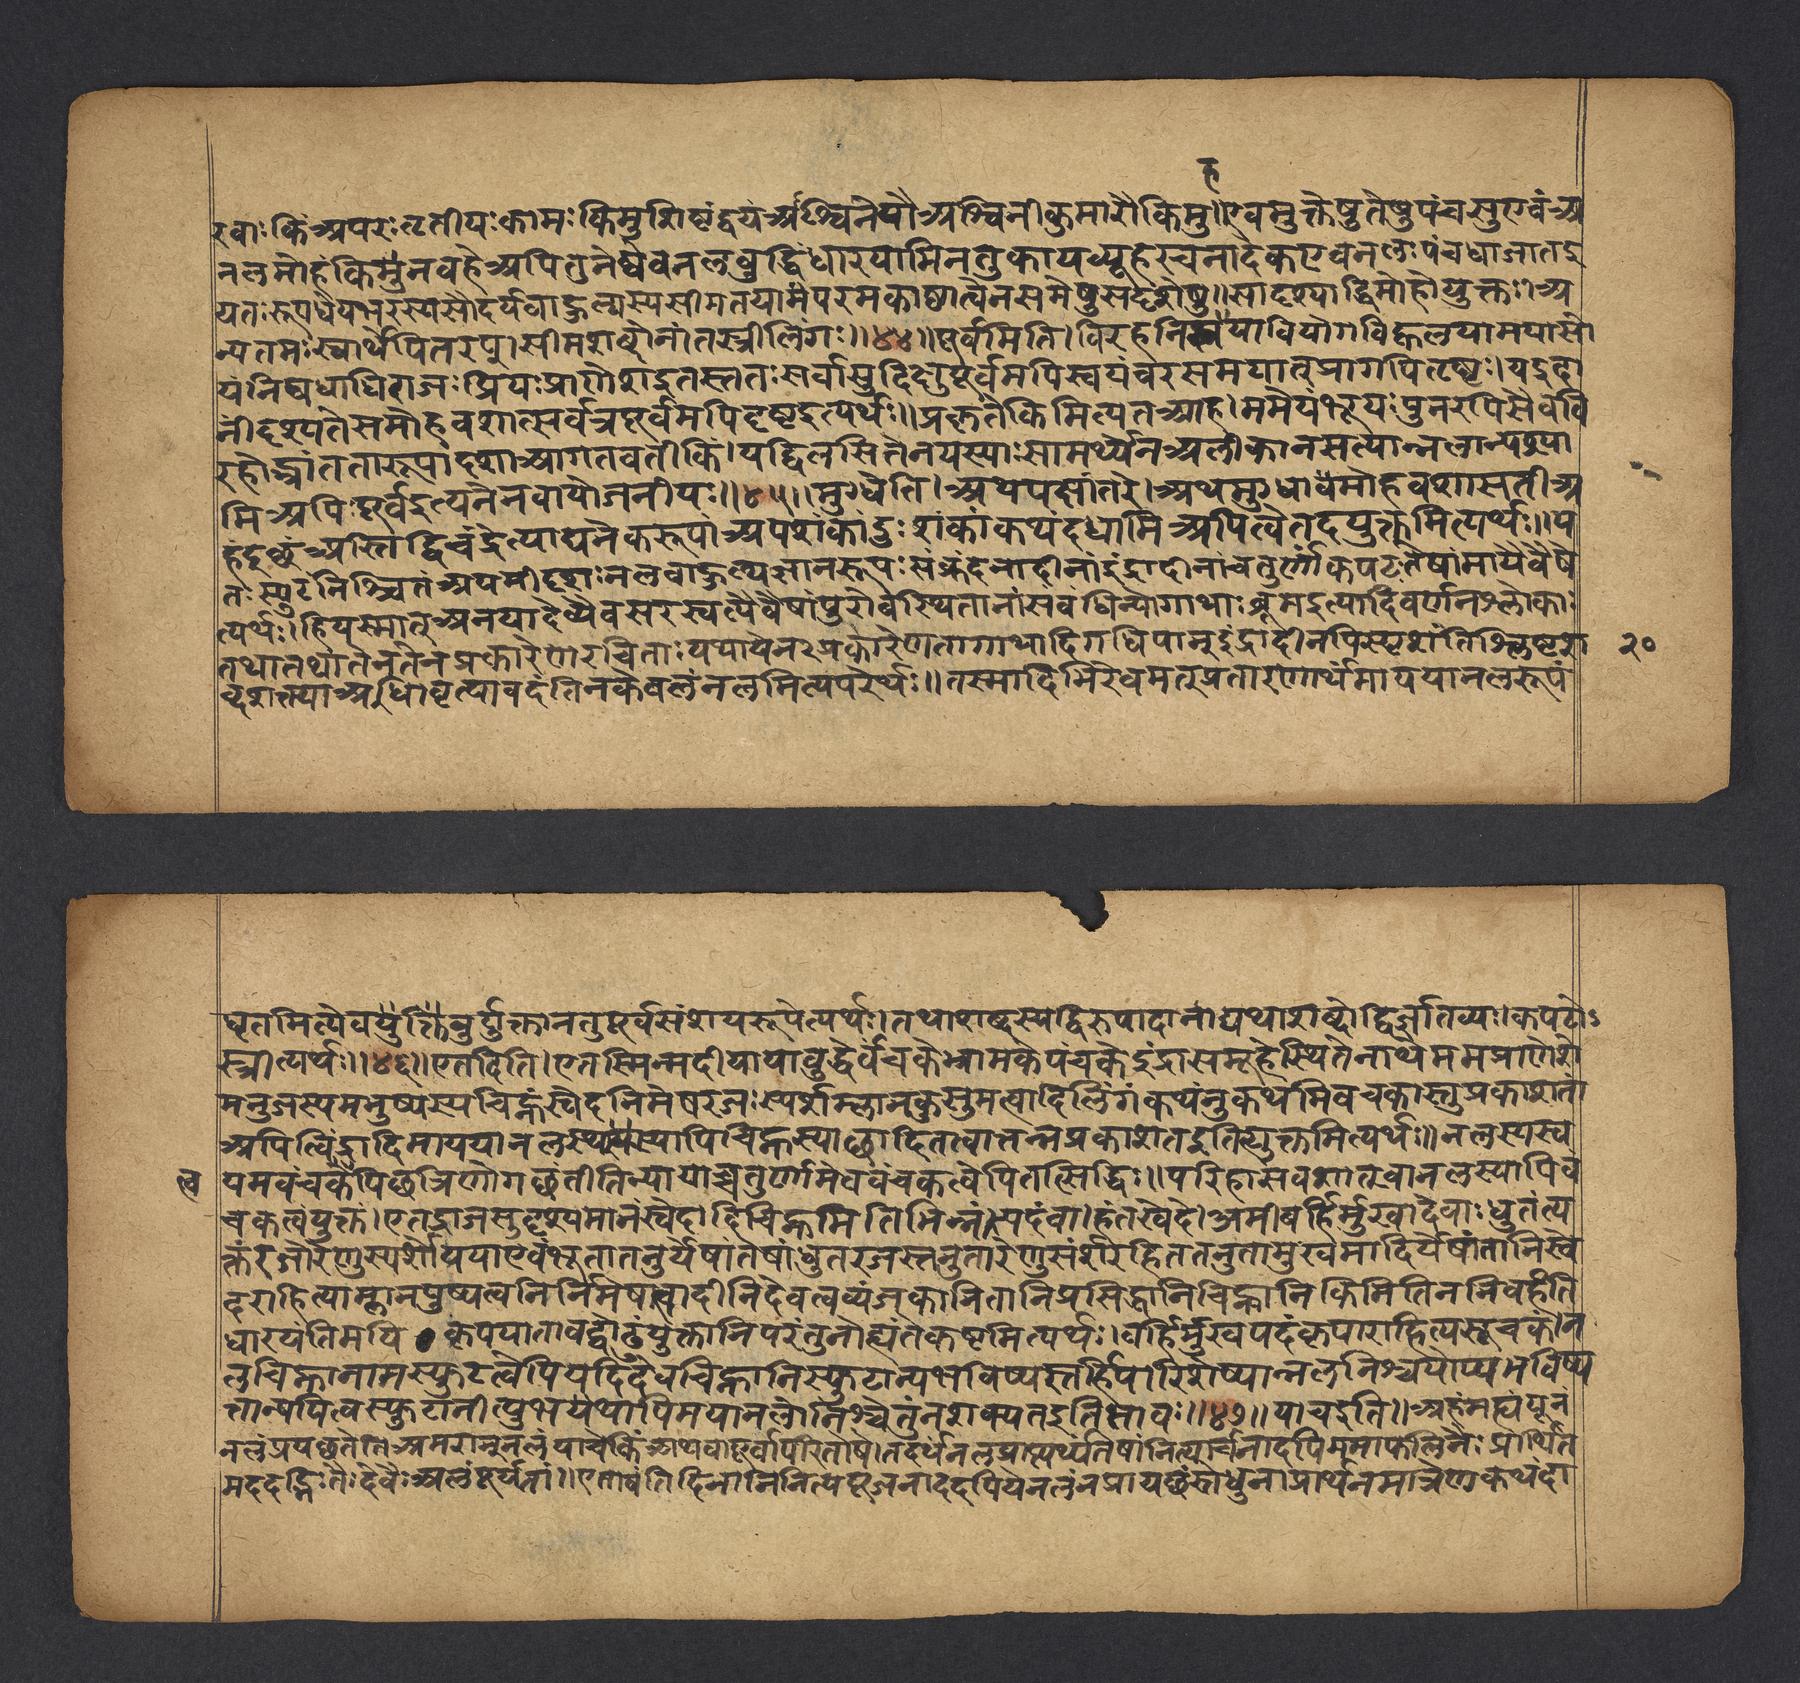 ह
रवाः किं अपरः तृतीयः कामः किमु शिष्टं द्वयं अश्विनेयौ अश्विनीकुमारौ किमु॥ एवमुक्तेषु तेषु पंचसु एवं अ
नलमोहं किमु न वहे अपि तु नैषधेव नलबुद्धिं धारयामि न तु कायव्यूहरचनादेक एव नलः पंचधा जात इ
यतः रूपधेयभरस्य सौंदर्यबाहुल्यस्य सीमतया परमकाष्ठात्वेन समेषु सदृशेषु॥ सादृश्याद्धि मोहो युक्तः। अ
न्यतमः स्वार्थेपि तरपु। सीमशब्दो नांतस्त्रीलिंगः॥४४॥ पूर्वमिति। विरहनिःस्वया वियोगविह्वलया मया सो
यं निषधाधिराजः प्रियः प्राणेशः इतस्ततः सर्वासु दिक्षु पूर्वमपि स्वयंवरसमयात् प्रागपि दृष्टः। यदुदा
नीं दृश्यते समोहवशात्सर्वत्र पूर्वमपि दृष्ट इत्यर्थः॥ प्रकृते किमित्यत आह। ममेयं भूयः पुनरपि सैव वि
रहोद्भ्रांततारूपा दशा आगतवती किं। यद्विलसितेन यस्याः सामर्थ्येन अलीकानसत्यान्नलान्पश्या
मि अपिः पूर्व इत्यनेन वा योजनीयः॥४५॥ मुग्धेति। अथ पक्षांतरे। अथ मुग्धा मोहवशा सती अ
हं दुष्टं अस्ति द्विचंद्रेत्याद्यनेकरूपां अपशंकां दुःशंकां कथं दधामि अपि त्वेतदयुक्तमित्यर्थः॥ य
तः स्फुटं निश्चितं अयमीदृशः नलबाहुल्यज्ञानरूपः संक्रंदनादीनां इंद्रादीनां चतुर्णां कपटः तेषां मायैवैषे
त्यर्थः। हि यस्मात् अनया देव्यैव सरस्वत्यैवैषां पुरोवस्थितानां संबंधिन्यो गाथाः ब्रूम इत्यादिवर्णनश्लोकाः
तथा तथा तेन तेन प्रकारेण रचिताः यथा येन २ प्रकारेण ता गाथा दिगधिपान् इंद्रादीनपि स्पृशंति श्लिष्टश
ब्दशक्त्या अभिधावृत्या वदंति न केवलं नलमित्यपेरर्थः॥ तस्मादेभिरेव मत्प्रतारणार्थं मायया नलरूपं
२०
धृतमित्येव युक्तिर्बुर्युक्ता न तु पूर्वसंशयरूपेत्यर्थः। तथाशब्दस्य द्विरुपादानाद्यथाशब्दो द्विर्ज्ञातव्यः। कपटो ऽ
स्त्रीत्यर्थः॥४६॥ एतदिति। एतस्मिन्मदीयाया बुद्धेर्वंचके भ्रामके पंचके इंद्रासमूहे स्थितेनाथे मम प्राणेशे
मनुजस्य मनुष्यस्य चिह्नं स्वेदनिमेषरजःस्पर्शम्लानकुसुमत्वादिलिंगं कथं नु कथमिव चकास्तु प्रकाशतां
अपि त्विंद्रादिमायया नलस्यापि चिह्नस्याच्छादितत्वात्तन्न प्रकाशत इति त्युक्तमित्यर्थः॥ नलस्य स्व
त्व
यमवंचकेपि छत्रिणो गच्छंतीति न्यायाच्चतुर्णामेव वंचकत्वेपि तत्सिद्धिः॥ परिहासवशात् वा नलस्यापि वं
चकत्वं युक्तं। एतद्राजसु दृश्यमानं स्वेदादिचिह्नमिति भिन्नं पदं वा। हंत खेदे। अमी बर्हिर्मुखा देवाः धुतं त्य
क्तं रजो रेणुस्पर्शो यया एवंभूता तनुर्येषां तेषां धुतरजस्तनुता रेणुसंस्पर्शरहिततनुतामुखमादिर्येषां तानि स्वे
दराहित्याम्लानपुष्पत्वनिर्निमेषत्वादीनि देवत्वव्यंजकानि तानि प्रसिद्धानि चिह्नानि किमिति न निवहंति
धारयंति मयि कृपया तावद्वोढुं युक्तानि परंतु नोह्यंते कष्टमित्यर्थः। बर्हिर्मुखपदं कृपाराहित्यसूचकं। न
लचिह्नानामस्फुटत्वेपि यदि देवचिह्नानि स्फुटान्यभविष्यंस्तर्हि पारिशेष्यान्नलनिश्चयोप्यभविष्य
त्तान्यपि त्वस्फुटानीत्युभयथापि मया नलो निश्चेतुं न शक्यत इति भावः॥४७॥ याचइति॥ अहं मह्यं यून
नलं प्रयच्छतेति अमरान्नु नलं याचे किं अथवा पूर्वापरितोषे। तदर्थं नलप्राप्त्यर्थं तेषां नित्यार्चनादपि ममाफलिनैः प्रार्थित
मददद्भिः तैः देवैः अलं पूर्यतां॥ एतावंति दिनानि नित्यपूजनादहपि ये नलं न प्रायच्छंस्तेधुना प्रार्थनमात्रेण कथं दा